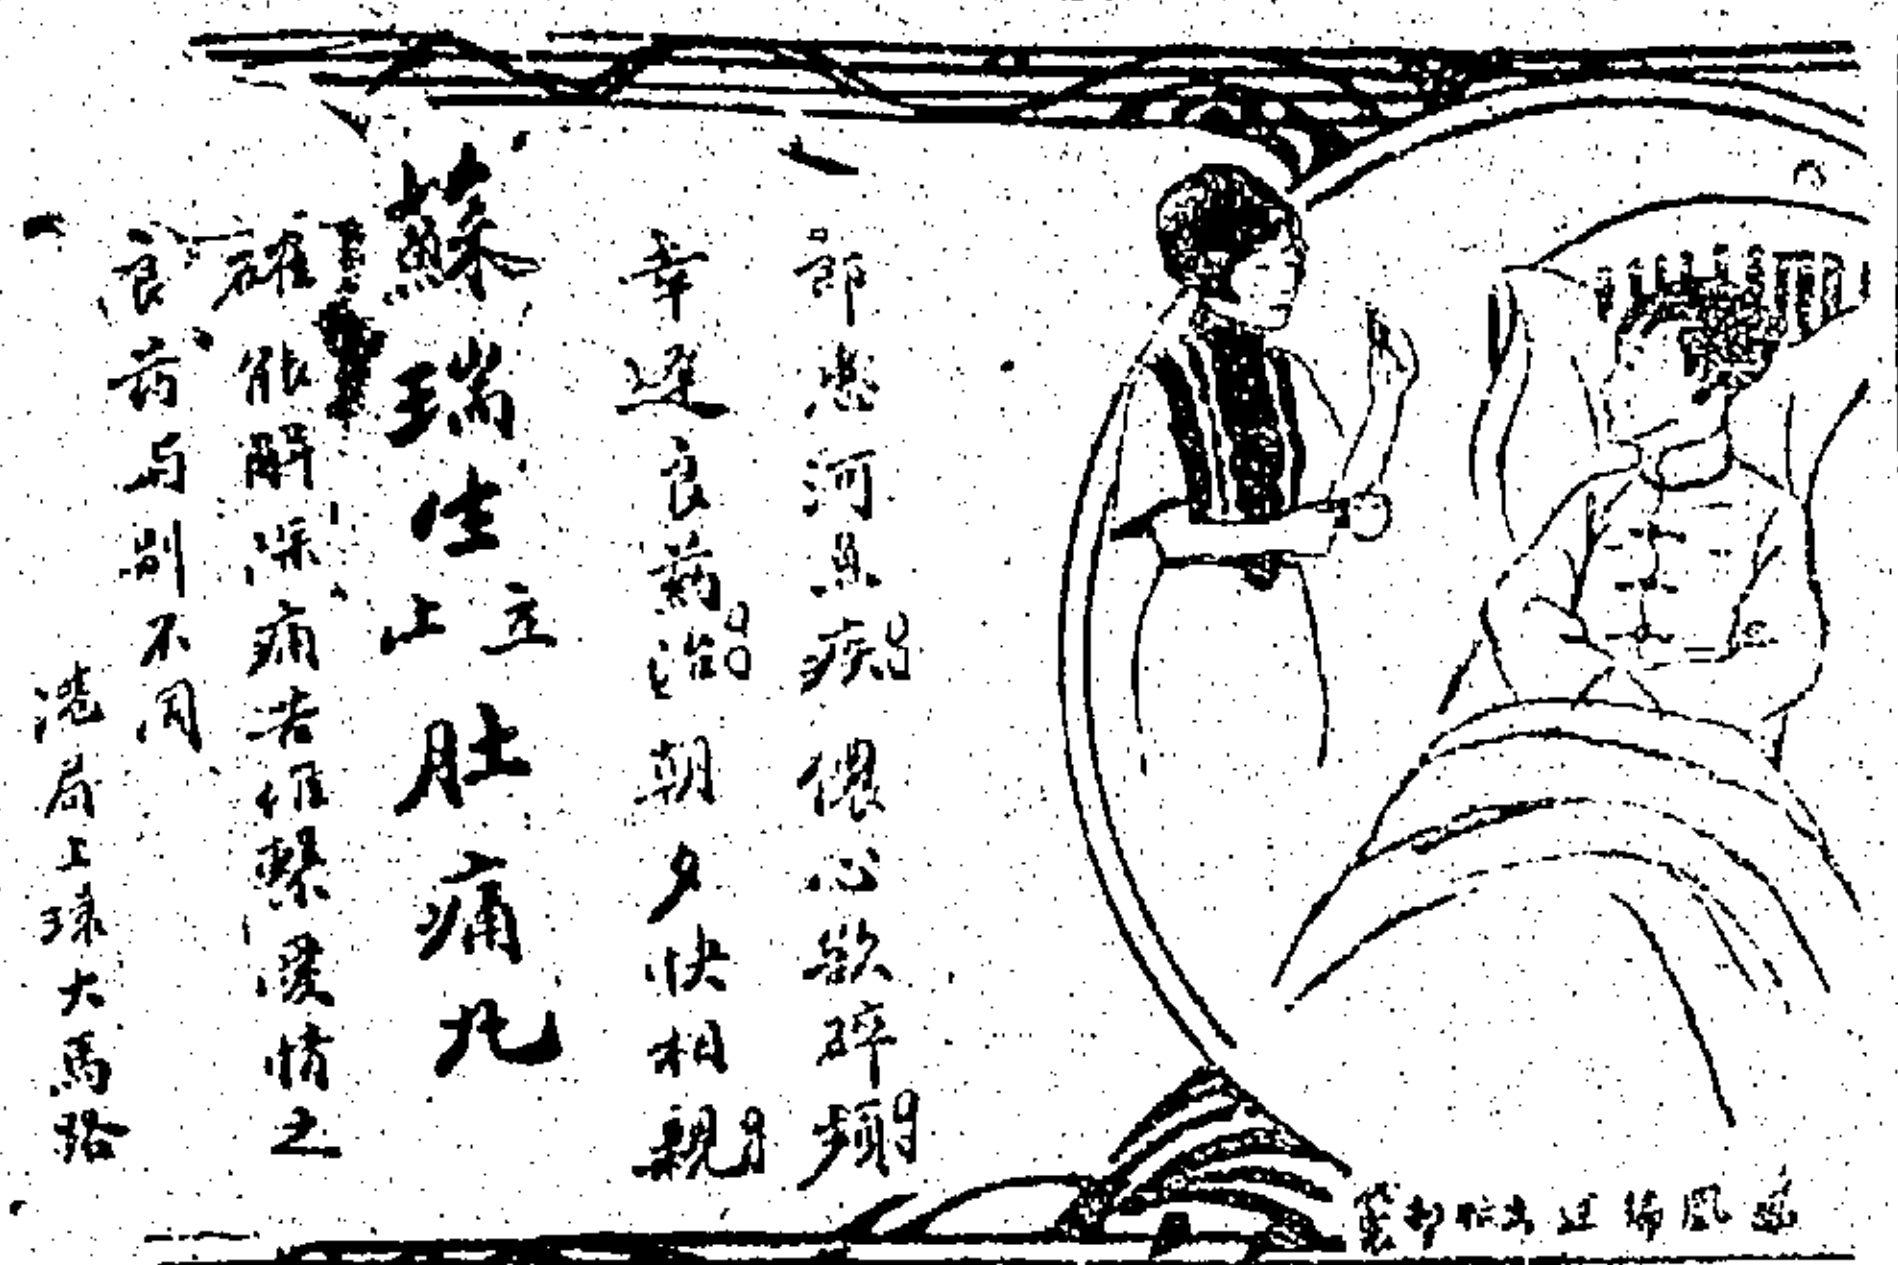 郎患河魚疾 儂心欲碎頻
幸逢良药治 朝夕快相親
蘇瑞生立止肚痛丸
確能解深痛苦維繫愛情之
良药与别不同
港局上环大馬路